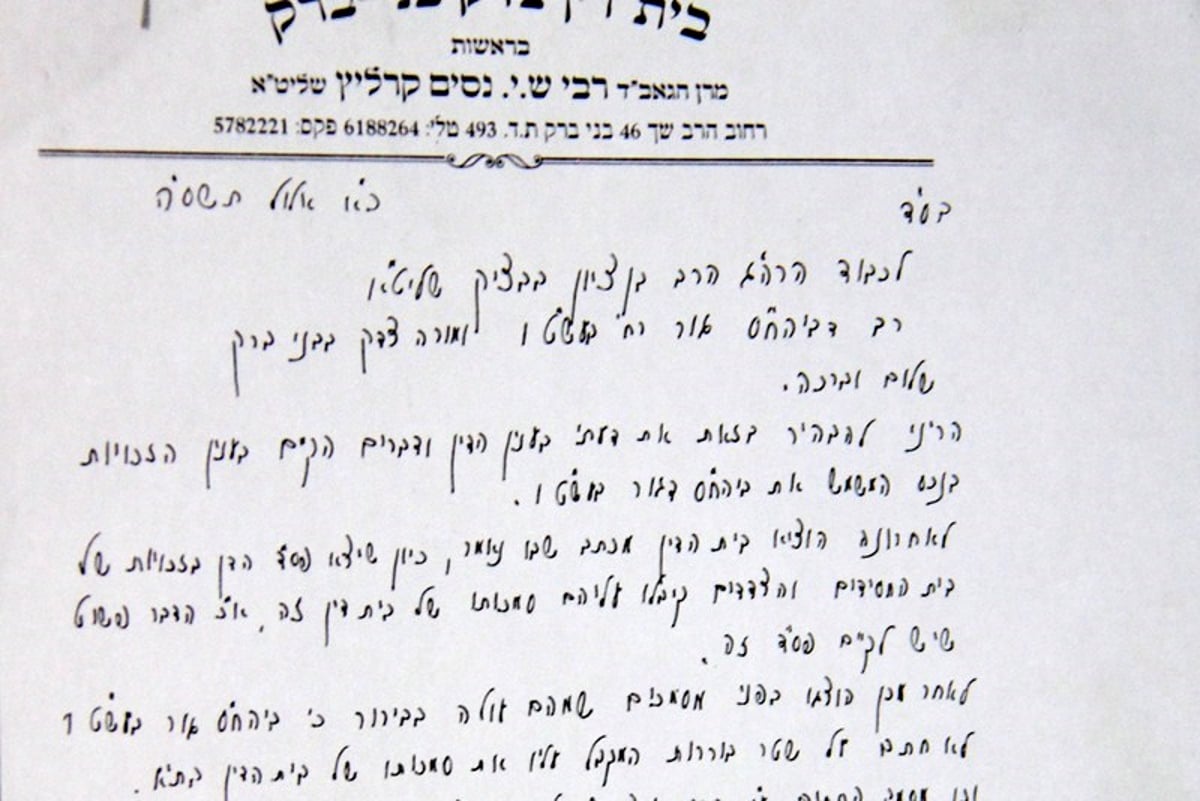 בית דין צדק בני ברק
בראשות
מרן הגאב"ד רבי ש.י. נסים קרליץ שליט"א
רחוב הרב שך 46 בני ברק ת.ד. 493 טלי: 6188264 פקס: 5782221
בס"ד כ"א אלול תשס"ה
לכבוד הרה"ג הרב בן ציון בבציק שליט"א
רב דביהח"ס גור רח' בעש"ט ומורה צדק בבני ברק
שלום וברכה.
הריני להבהיר בזאת את דעתי בענין הדין ודברים הקיים בענין הזכויות
בנכס המשמש את ביהח"ס דגור בעש"ט 1.
לאחרונה הוציא בית הדין מכתב שבו נאמר, כיון שיצא פס"ד הדן בזכויות של
בית החסידים והצדדים קיבלו עליהם סמכותו של בית דין זה, א"כ הדבר פשוט
שיש לקיים פס"ד זה.
לאחר מכן הוצגו בפני מסמכים שמהם עולה בבירור כי ביהח"ס גור בעש"ט 1
לא חתם על שטר בוררות המקבל עליו את סמכותו של בית הדין בת"א.